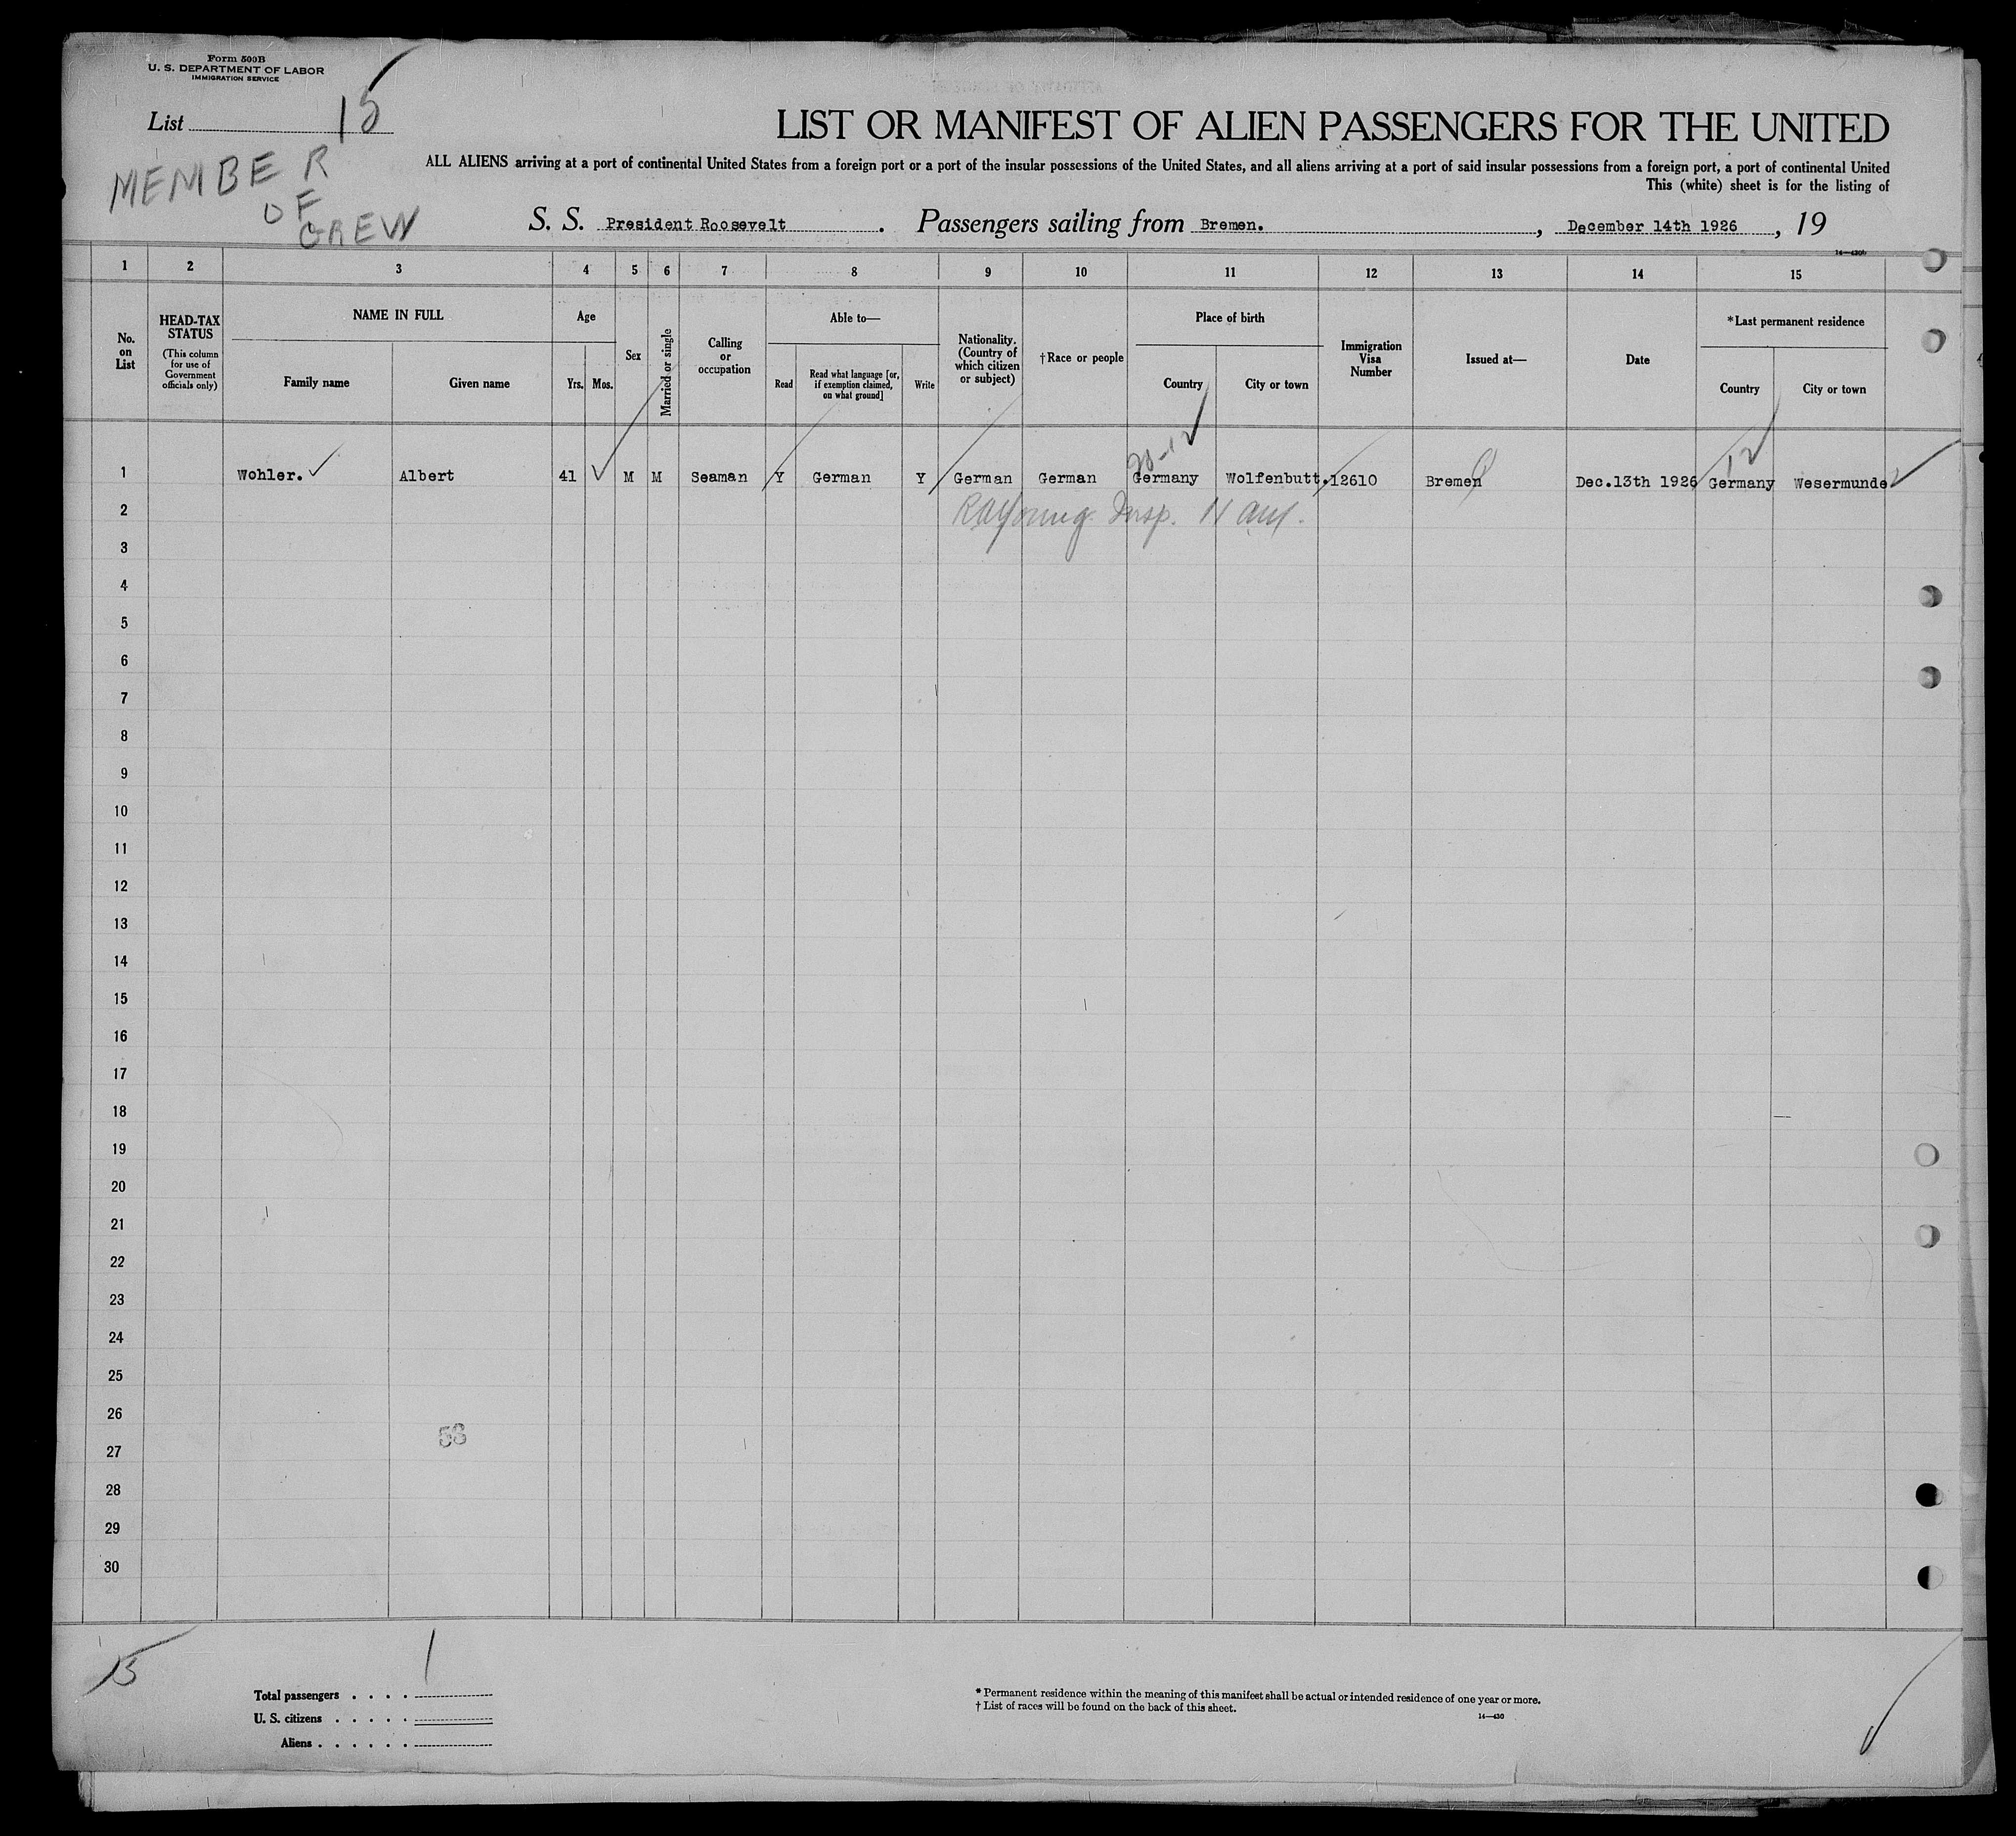 Form 500B
U. S. DEPARTMENT OF LABOR
IMMIGRATION SERVICE
List 15
MEMBER
OF
CREW
LIST OR MANIFEST OF ALIEN PASSENGERS FOR THE UNITED
ALL ALIENS arriving at a port of continental United States from a foreign port or a port of the insular possessions of the United States, and all aliens arriving at a port of said insular possessions from a foreign port, a port of continental United
This (white) sheet is for the listing of
S. S. President Roosevelt . Passengers sailing from Bremen. , December 14th 1926 , 19
14—430b
1 2 3 4 5 6 7 8 9 10 11 12 13 14 15
No. on List
HEAD-TAX STATUS
(This column for use of Government officials only)
NAME IN FULL
Family name Given name
Age
Yrs. Mos.
Sex
Married or single
Calling or occupation
Able to—
Read
Read what language [or, if exemption claimed, on what ground]
Write
Nationality. (Country of which citizen or subject)
†Race or people
Place of birth
Country City or town
Immigration Visa Number
Issued at—
Date
*Last permanent residence
Country City or town
20-12 12
1 Wohler. Albert 41 M M Seaman Y German Y German German Germany Wolfenbutt. 12610 Bremen Dec.13th 1926 Germany Wesermunde
2 Young Insp.
3
4
5
6
7
8
9
10
11
12
13
14
15
16
17
18
19
20
21
22
23
24
25
26
27
28
29
30
15
1
Total passengers . . . .
U. S. citizens . . . . .
Aliens . . . . . .
* Permanent residence within the meaning of this manifest shall be actual or intended residence of one year or more.
† List of races will be found on the back of this sheet.
14—430